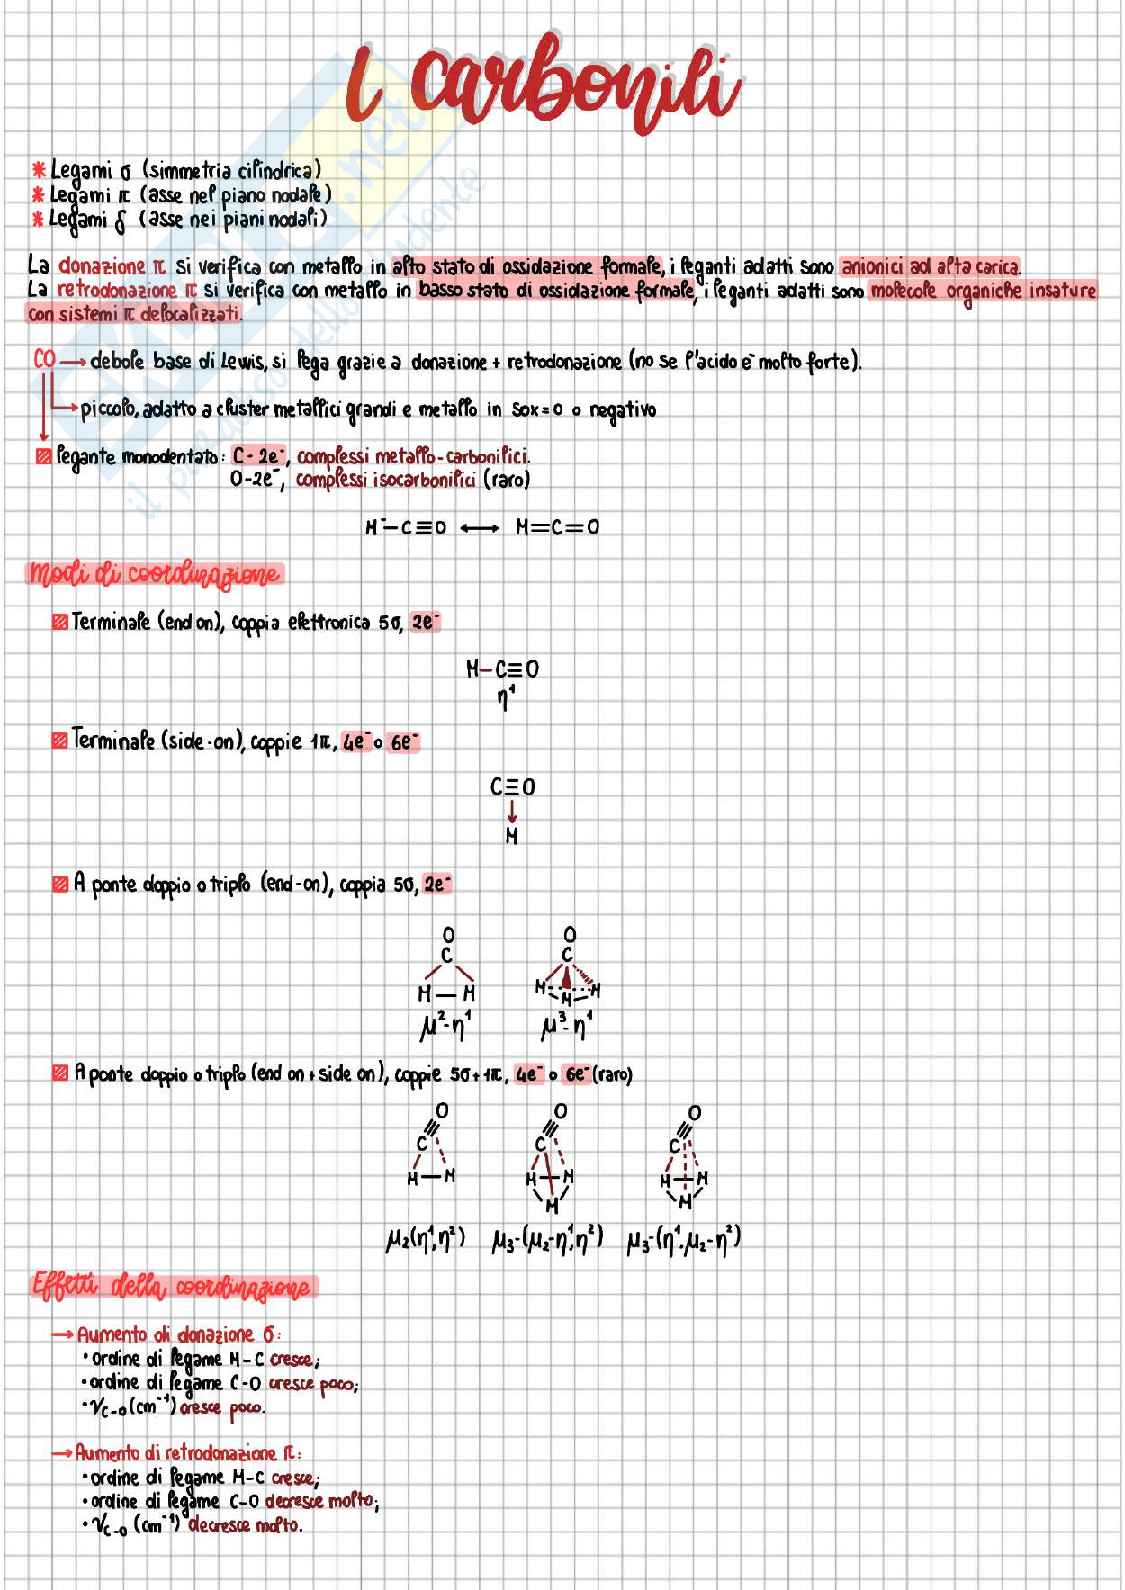 I carbonili
* Legami σ (simmetria cilindrica)
* Legami π (asse nel piano nodale)
* Legami δ (asse nei piani nodali)
La donazione π si verifica con metallo in alto stato di ossidazione formale, i leganti adatti sono anionici ad alta carica.
La retrodonazione π si verifica con metallo in basso stato di ossidazione formale, i leganti adatti sono molecole organiche insature
con sistemi π delocalizzati.
CO → debole base di Lewis, si lega grazie a donazione + retrodonazione (no se l'acido è molto forte).
→ piccolo, adatto a cluster metallici grandi e metallo in Sox=0 o negativo
legante monodentato: C-2e⁻, complessi metallo-carbonilici.
O-2e⁻, complessi isocarbonilici (raro)
M⁻–C≡O ⟷ M=C=O
Modi di coordinazione
Terminale (end on), coppia elettronica 5σ, 2e⁻
M–C≡O
η¹
Terminale (side-on), coppie 1π, 4e⁻ o 6e⁻
C≡O
↓
M
A ponte doppio o triplo (end-on), coppia 5σ, 2e⁻
O O
C C
M — M M M M
μ²-η¹ μ³-η¹
A ponte doppio o triplo (end on + side on), coppie 5σ+1π, 4e⁻ o 6e⁻ (raro)
O O O
C C C
M — M M — M M — M
M M
μ₂(η¹,η²) μ₃-(μ₂-η¹,η²) μ₃-(η¹,μ₂-η²)
Effetti della coordinazione
→ Aumento di donazione σ:
• ordine di legame M-C cresce;
• ordine di legame C-O cresce poco;
• ν_C-O (cm⁻¹) cresce poco.
→ Aumento di retrodonazione π:
• ordine di legame M-C cresce;
• ordine di legame C-O decresce molto;
• ν_C-O (cm⁻¹) decresce molto.